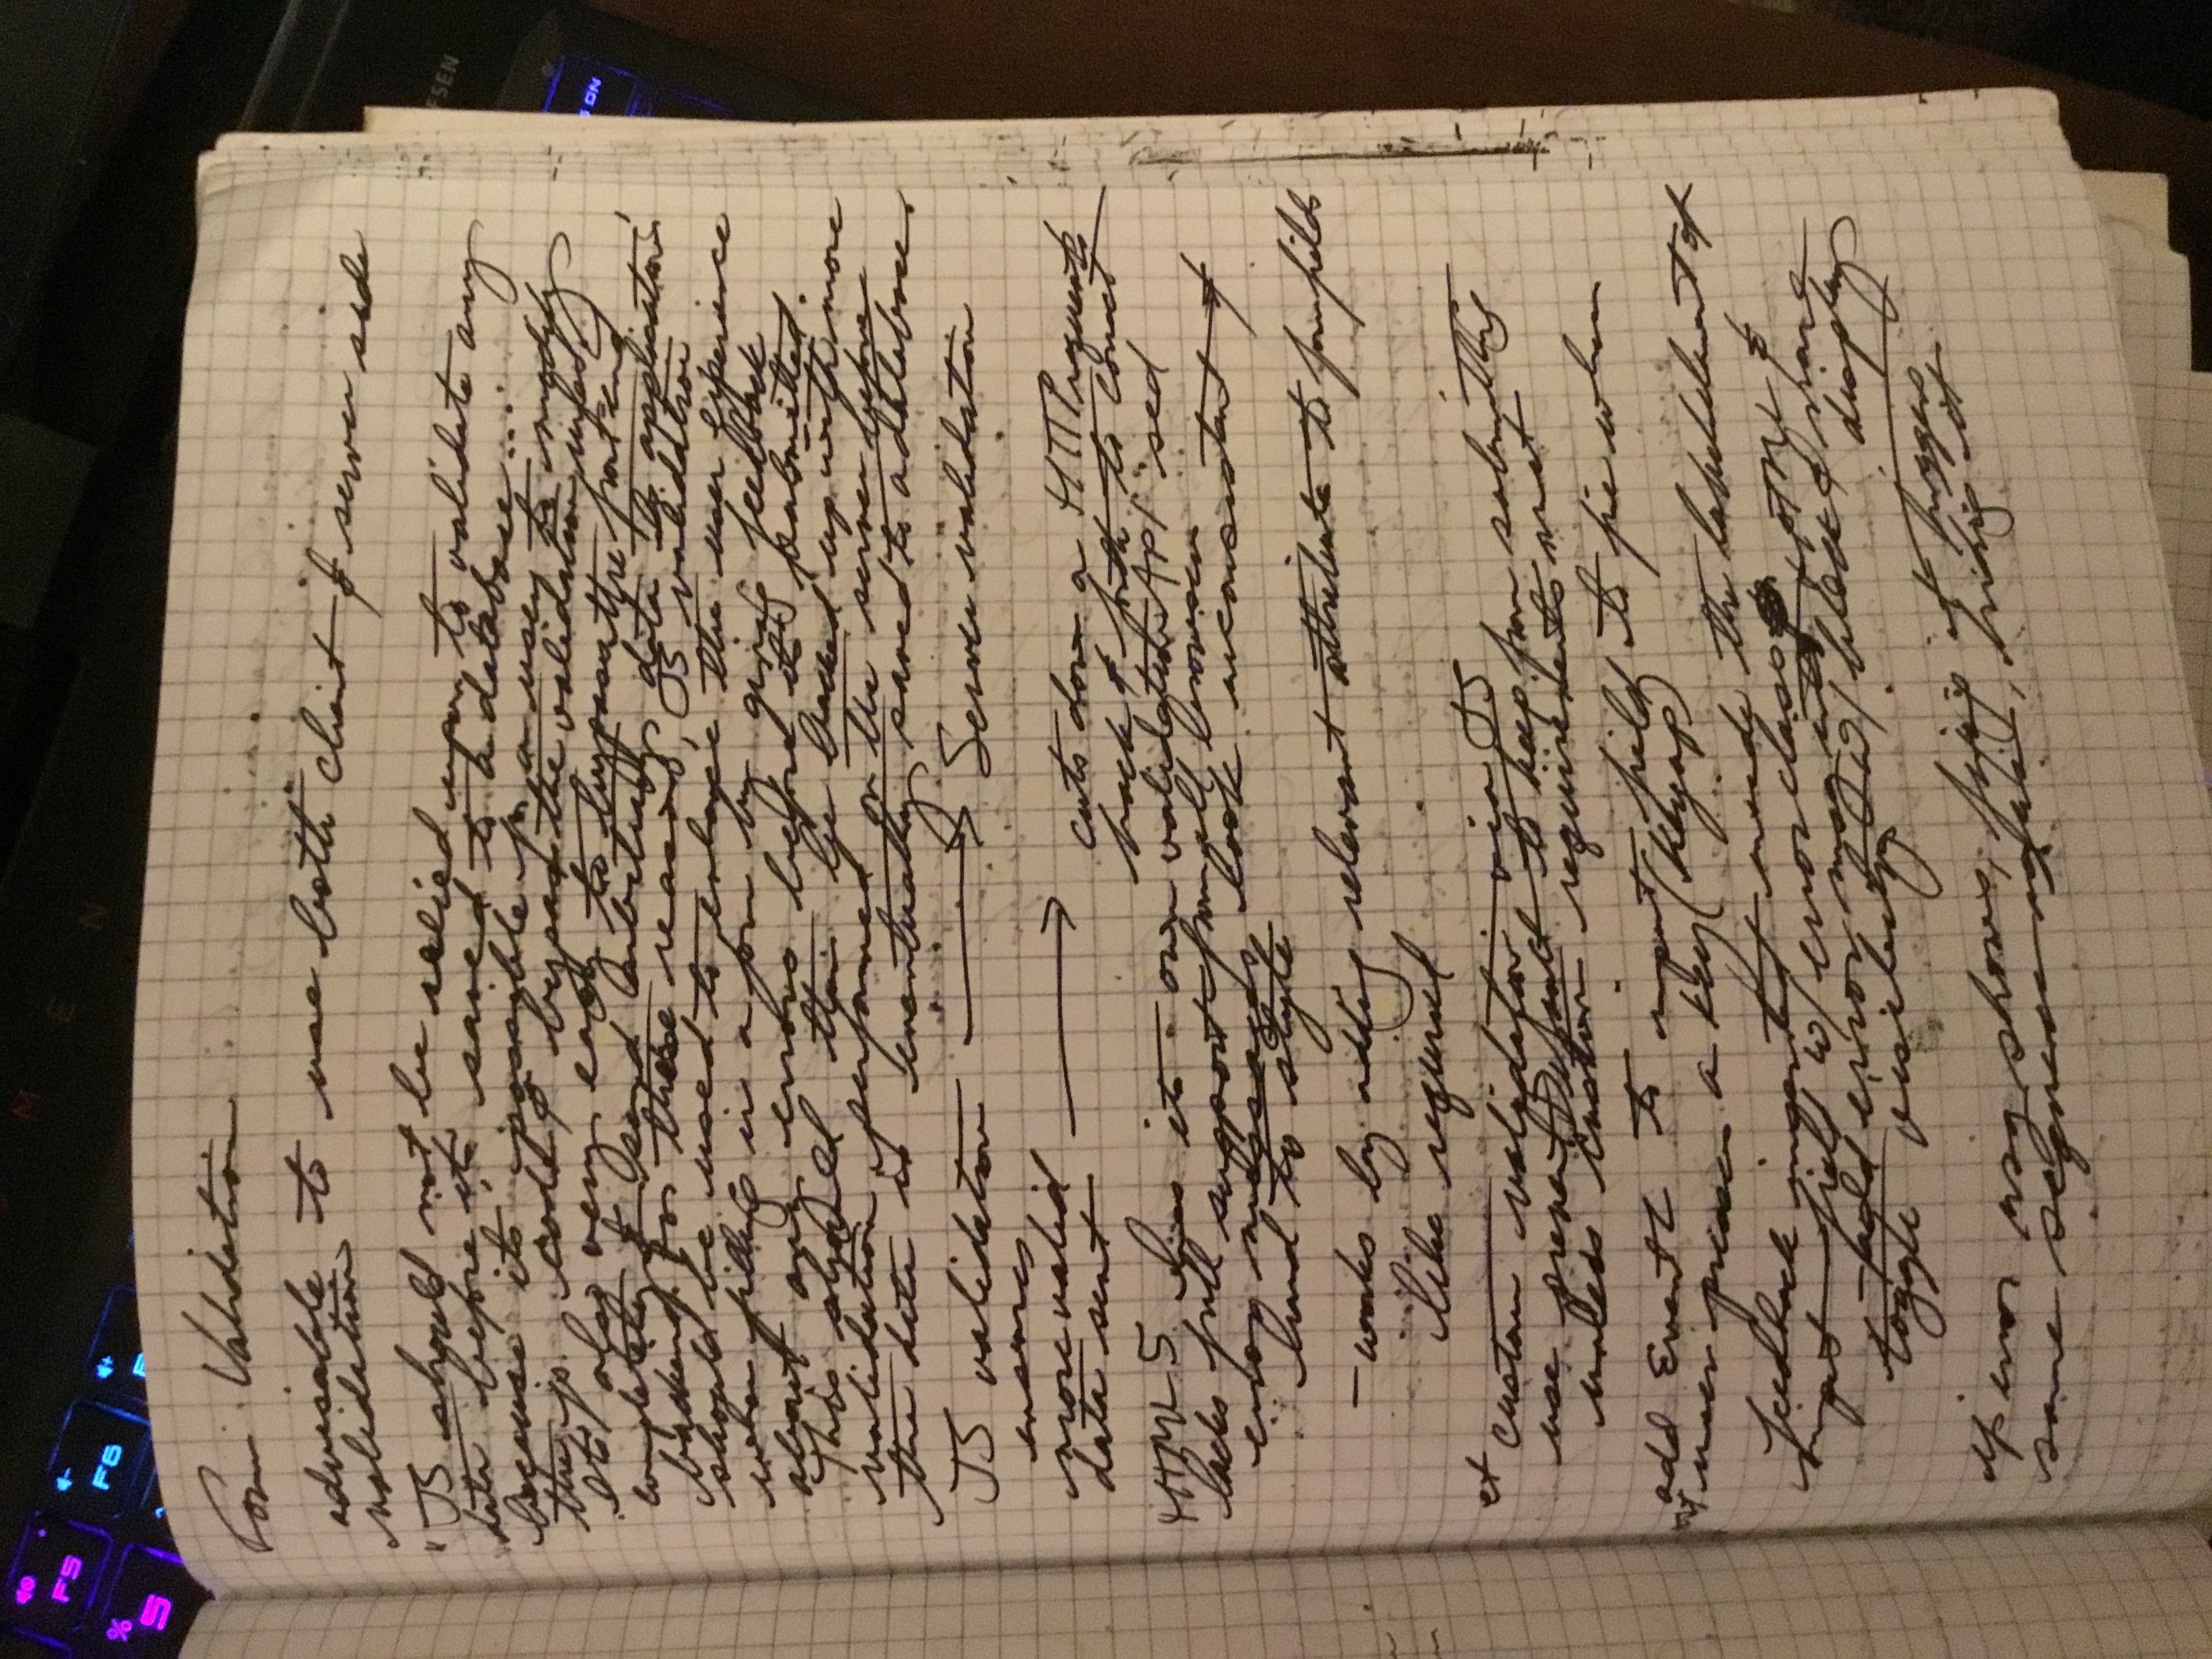 F5
F6
%
5
Form Validation
advisable to use both client & server side
validation
"JS should not be relied upon to validate any
data before its saved to a database...
because its possible for a user to modify
the js. code & bypass the validation rules.
Its also very easy to bypass the front end
completely & send arbitrary data to application
backend. For these reasons, JS validation
should be used to enhance the user experience
when filling in a form by giving feedback
about any errors before its submitted.
This should then be backed up with more
validation performed on the server before
the data is eventually saved to a database.
JS validation → Server validation
ensures
more valid
data sent → cuts down on HTTP requests
back & forth to correct
HTML5 has its own validation API sed
lacks full support from all browsers
error messages look inconsistent &
hard to style
- works by adding relevant attributes to form fields
like required
et custom validation via JS
use preventDefault to keep from submitting
unless custom requirements met
add EventL to input field to fire when
user presses a key (keyup)
feedback inserted inside the label element of
input field w/ error class
- add error msg into HTML &
toggle visibility w/ block & none
display
if error msg shows, fixing it triggers
same sequence again, hiding it